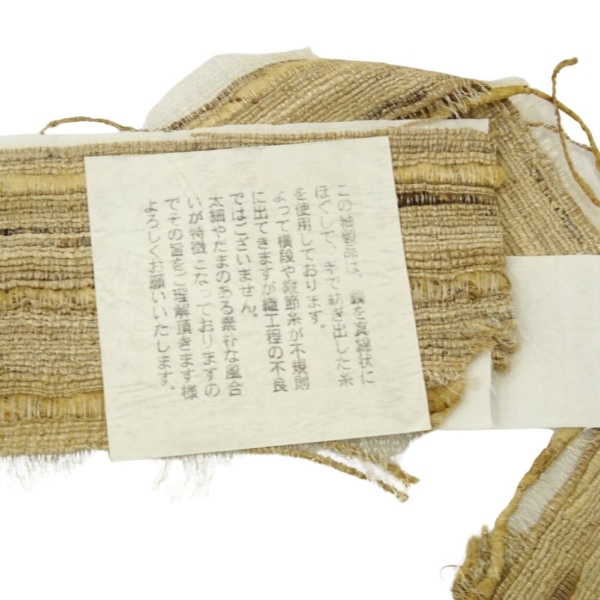 この紬製品は、繭を真綿状に
ほぐして、手で紡ぎ出した糸
を使用しております。
よって横段や緞節糸が不規則
に出てきますが織工程の不良
ではございません。
太細やだまのある素朴な風合
いが特徴となっておりますの
でその旨をご理解頂きます様
よろしくお願いいたします。